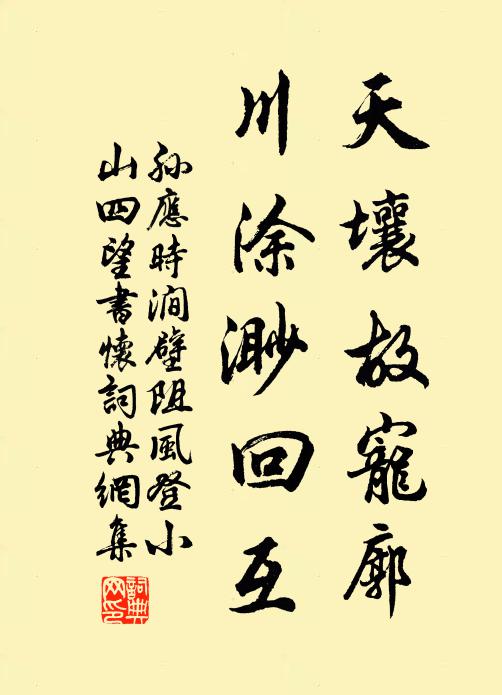 天壤故寵廓
川涂渺回互
孫應時澗壁阻風登小
山四望書懷詞典網集
詞典网印